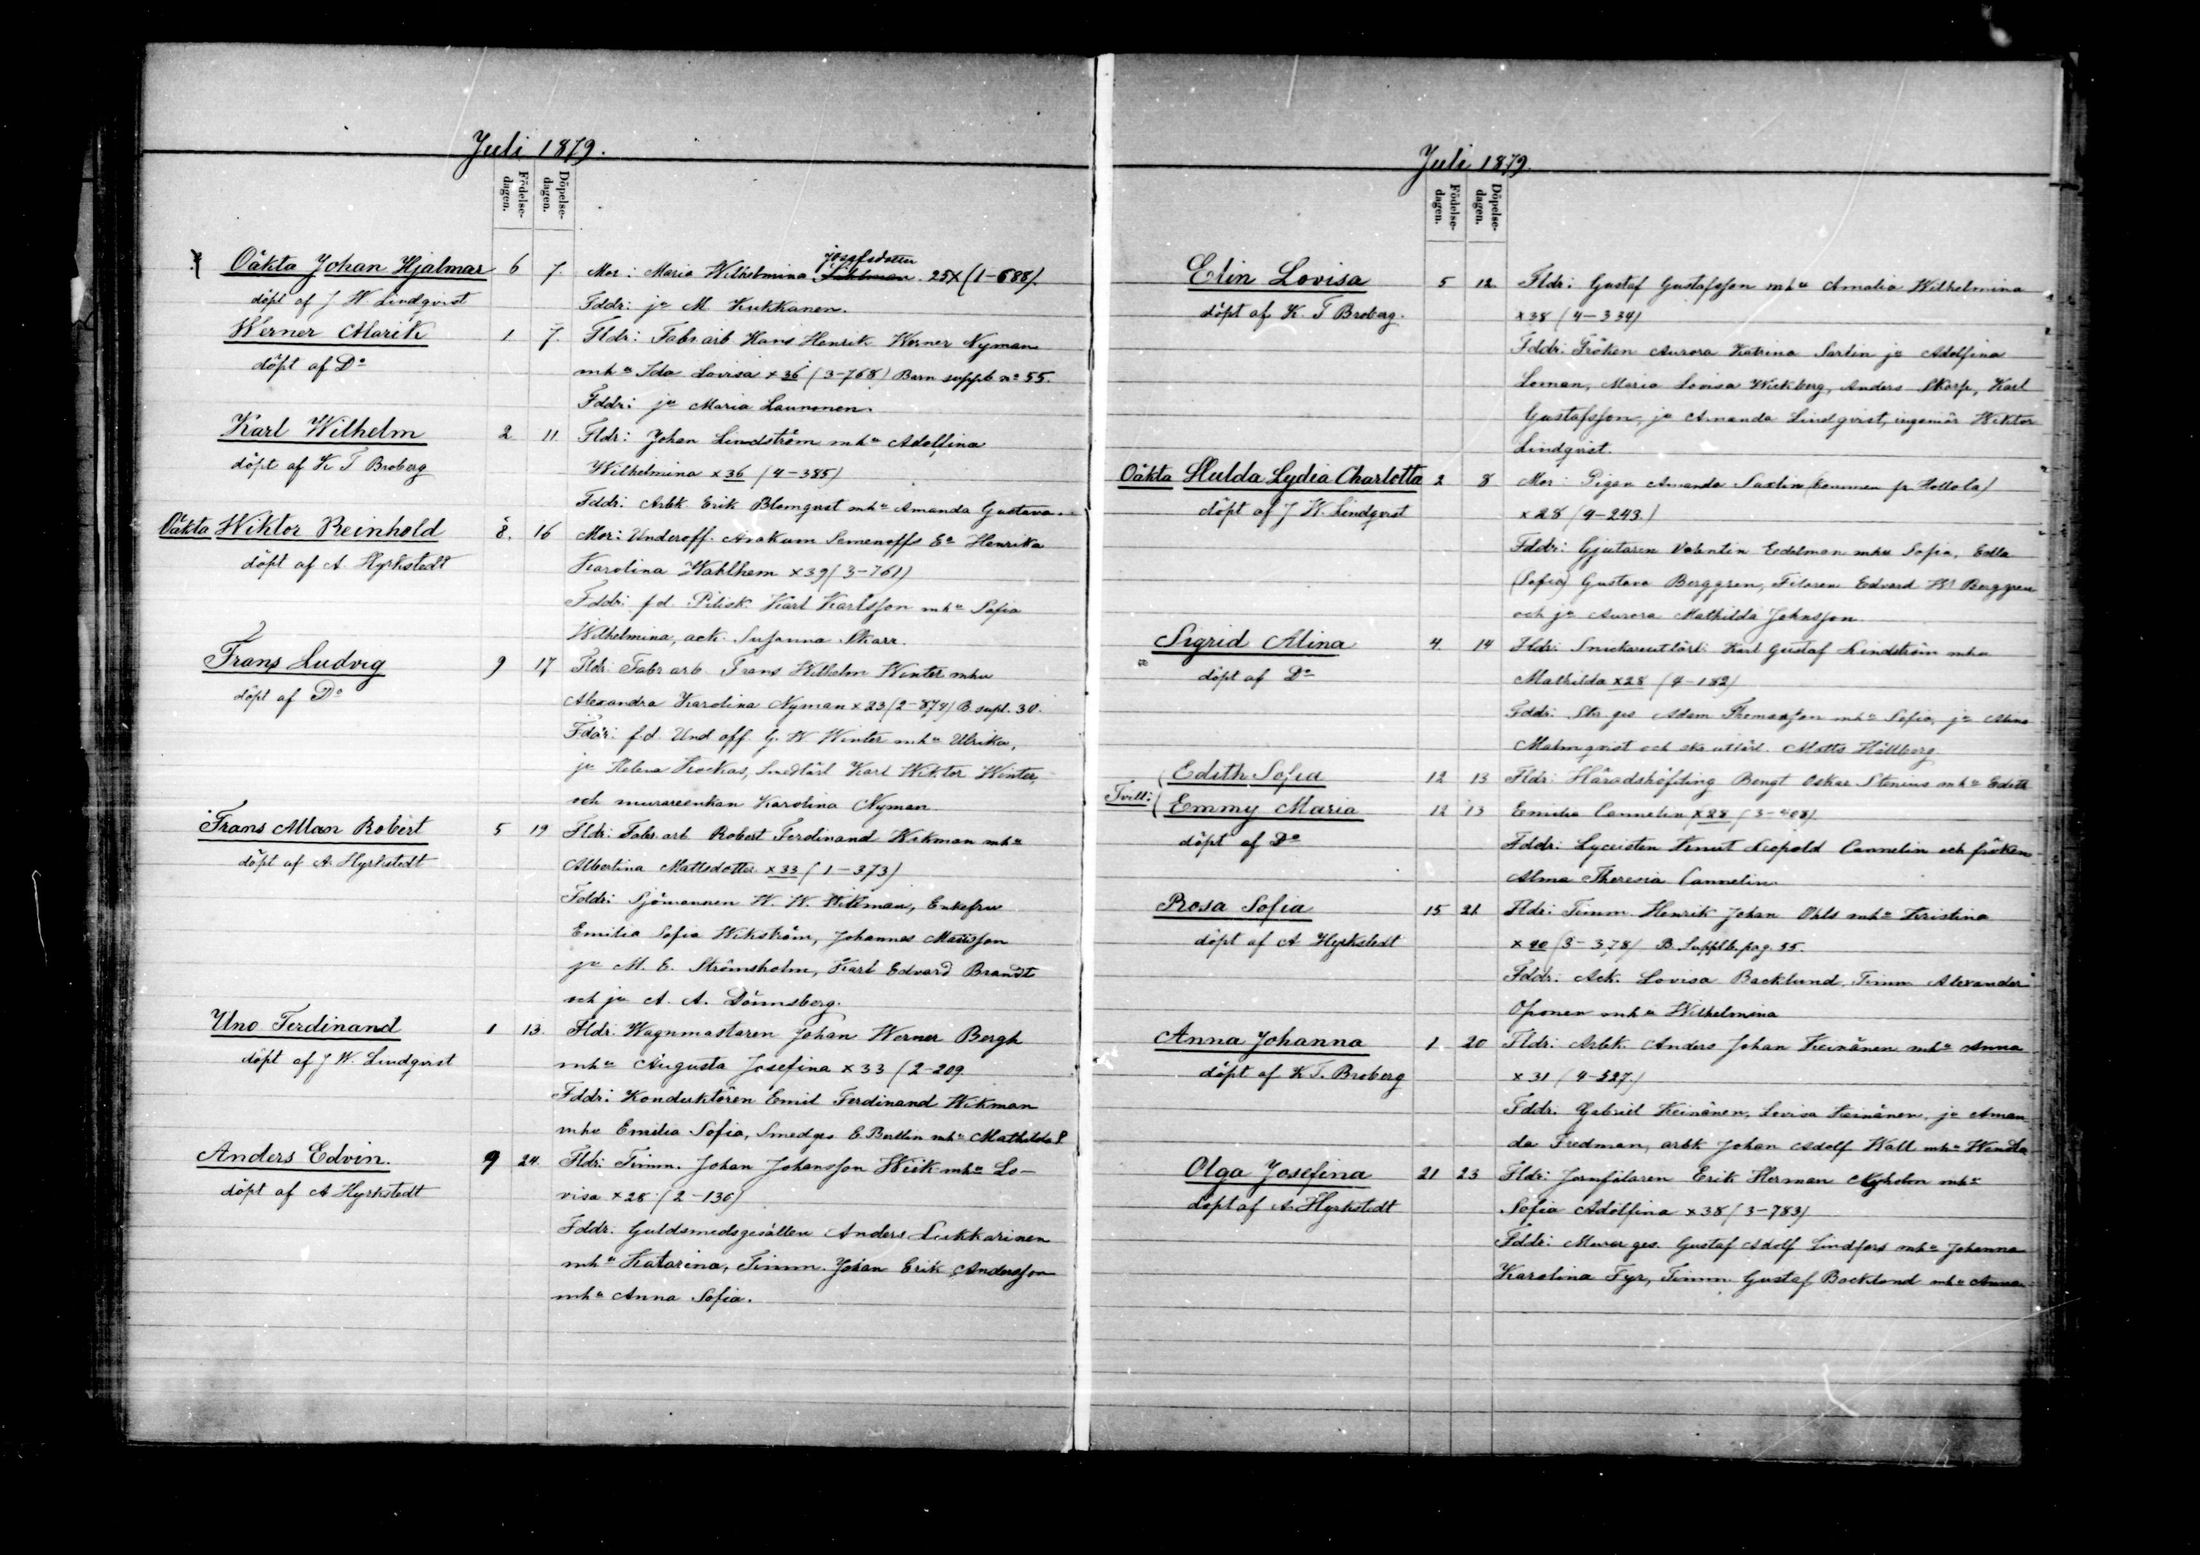 Juli 1879.
Födelse-
dagen.
Döpelse-
dagen.
Oäkta Johan Hjalmar 6 7. Mor: Maria Wilhelmina Josefsdotter 25 x (1-688).
döpt af J W. Lindqvist
Fddr: ja M. Kukkanen.
Werner Marik 1. 7. Fldr: Fabr. arb Hans Henrik Werner Nyman
döpt af Do
mha Ida Lovisa x 36 (3-768) Barn suppl. no 55.
Fddr: ja Maria Launonen.
Karl Wilhelm 2 11. Fldr: Johan Lindström mha Adolfina
döpt af K T Broberg
Wilhelmina x 36 (4-385)
Fddr: Arbk. Erik Blomqvist mha Amanda Gustava.
Oäkta Wiktor Reinhold 8. 16 Mor: Underoff. Avakum Semenoffs Ea Henrika
döpt af A Hyrkstedt
Karolina Wahlhem x 39 (3-761)
Fddr: f.d. Pitisk. Karl Karlsson mha Sofia
Wilhelmina, ack. Susanna Skarr.
Frans Ludvig 9 17 Fldr: Fabr arb. Frans Wilhelm Winter mha
döpt af Do
Alexandra Karolina Nyman x 23 (2-874) B. supl. 30.
Fddr: f.d. Und off. G. W Winter mha Ulrika,
ja Helena Hockas, Smedlärl Karl Wiktor Winter,
och murareenkan Karolina Nyman
Frans Allan Robert 5 19 Fldr: Fabr. arb Robert Ferdinand Wikman mha
döpt af A. Hyrkstedt
Albertina Mattsdotter x 33 (1-373)
Fddr: Sjömannen W. W. Wikman, Enkefru
Emilia Sofia Wikström, Johannes Mattsson
ja M. E. Strömsholm, Karl Edvard Brandt
och ja A. A. Dönnsberg.
Uno Ferdinand 1 13. Fldr: Wagnmästaren Johan Werner Bergh
döpt af J W. Lindqvist
mha Augusta Josefina x 33 (2-209
Fddr: Konduktören Emil Ferdinand Wikman
mha Emilia Sofia, Smedges E Bertlin mha Mathilda
Anders Edvin. 9 24. Fldr: Timm. Johan Johansson Wiik mha Lo-
döpt af A Hyrkstedt
visa x 28 (2-130)
Fddr. Guldsmedsgesällen Anders Lukkarinen
mha Katarina, Timm. Johan Erik Andersson
mha Anna Sofia.
Juli 1879.
Födelse-
dagen.
Döpelse-
dagen.
Elin Lovisa 5 12. Fldr: Gustaf Gustafsson mha Amalia Wilhelmina
döpt af K. T Broberg.
x 38 (4-334)
Fddr: Fröken Aurora Katrina Sarlin ja Adolfina
Loman, Maria Lovisa Wickberg, Anders Skarp, Karl
Gustafsson, ja Amanda Lindqvist, ingeniör Wiktor
Lindqvist.
Oäkta Hulda Lydia Charlotta 2 8 Mor: Pigan Amanda Saxlin (kommen fr. Hollola)
döpt af J W. Lindqvist
x 28 (4-243.)
Fddr: Gjutaren Valentin Eedelman mha Sofia, Edla
(Sofia) Gustava Berggren, Filaren Edvard Wm Berggren
och ja Aurora Mathilda Johnsson.
Sigrid Alina 4. 14 Fldr: Snickareutlärl: Karl Gustaf Lindström mha
döpt af Do
Mathilda x 28 (4-182)
Fddr: Skr. ges Adam Thomasson mha Sofia, ja Alina
Malmqvist och ska utlärl. Matts Hällberg.
Tvill: Edith Sofia 12 13 Fldr: Häradshöfding Bengt Oskar Stenius mha Edith
Emmy Maria 12 13 Emilia Cannelin x 28 (3-408)
döpt af Do
Fddr: Lyceisten Knut Leopold Cannelin och fröken
Alma Theresia Cannelin.
Rosa Sofia 15 21. Fldr: Timm. Henrik Johan Ohls mha Kristina
döpt af A Hyrkstedt
x 40 (3-378) B. Supplb. pag. 55.
Fddr. Ack. Lovisa Backlund, Timm Alexander
Oponen mha Wilhelmina
Anna Johanna 1. 20 Fldr: Arbk. Anders Johan Keinänen mha Anna
döpt af K T. Broberg
x 31 (4-527.)
Fddr. Gabriel Keinänen, Lovisa Keinänen, ja Aman-
da Fredman, arbk Johan Adolf Wall mha Wendla
Olga Josefina 21 23 Fldr: Jernfilaren Erik Herman Nyholm mha
döpt af A. Hyrkstedt
Sofia Adolfina x 38 (3-783)
Fddr: Murar ges. Gustaf Adolf Lindfors mha Johanna
Karolina Fyr, Timm. Gustaf Backlund mha Anna